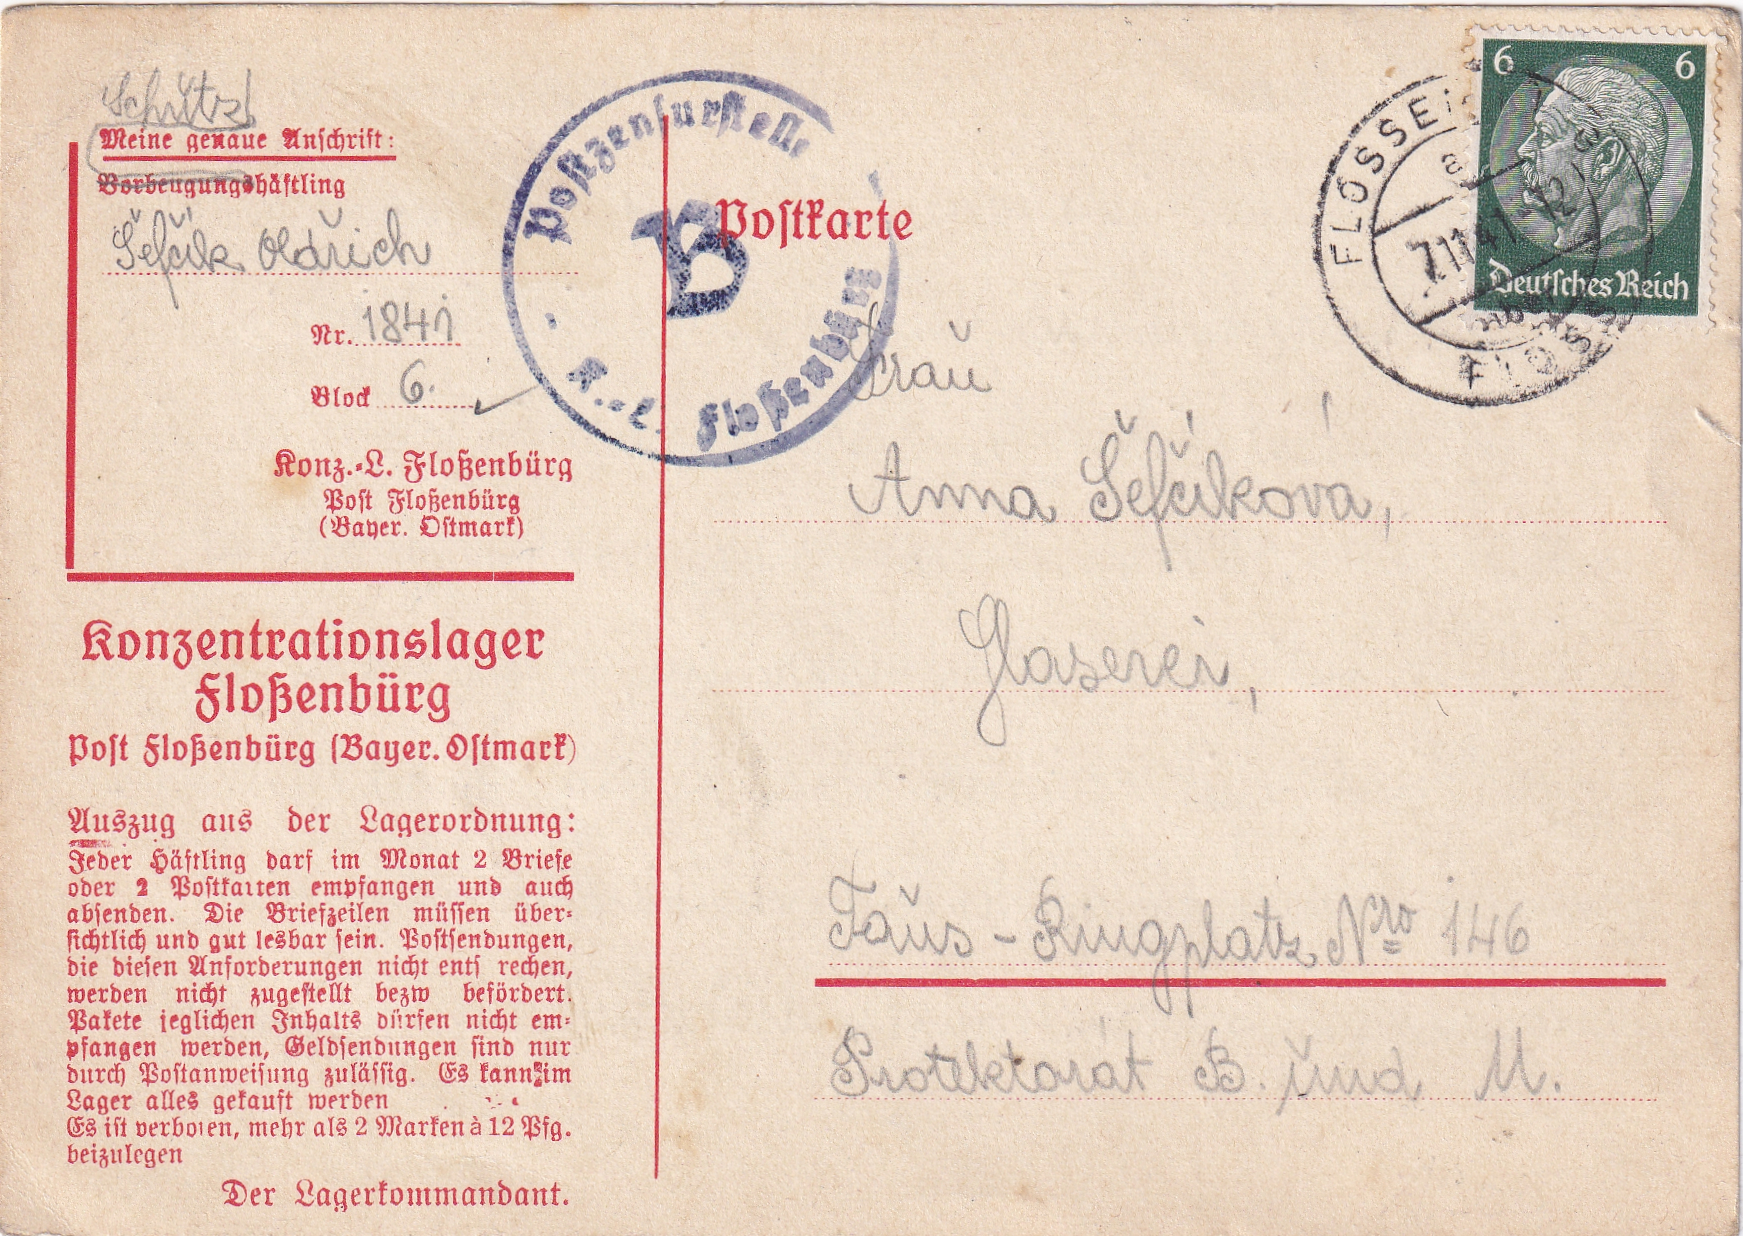 Schutz
Meine genaue Anschrift:
Vorbeugungshäftling
Šefčik Oldřich
Nr. 1841
Block 6.
Konz.-L. Floßenbürg
Post Floßenbürg
(Bayer. Ostmark)
Konzentrationslager
Floßenbürg
Post Floßenbürg (Bayer. Ostmark)
Auszug aus der Lagerordnung:
Jeder Häftling darf im Monat 2 Briefe
oder 2 Postkarten empfangen und auch
absenden. Die Briefzeilen müssen über-
sichtlich und gut lesbar sein. Postsendungen,
die diesen Anforderungen nicht ents rechen,
werden nicht zugestellt bezw befördert.
Pakete jeglichen Inhalts dürfen nicht em-
pfangen werden, Geldsendungen sind nur
durch Postanweisung zulässig. Es kann im
Lager alles gekauft werden
Es ist verboten, mehr als 2 Marken à 12 Pfg.
beizulegen
Der Lagerkommandant.
Postzensurstelle
B
K.-L. Floßenbürg
Postkarte
6 6
Deutsches Reich
a
7.11.41-12
FLOSS
Frau
Anna Šefčíková,
Glaserei,
Taus - Ringplatz Nro 146
Protektorat B. und M.